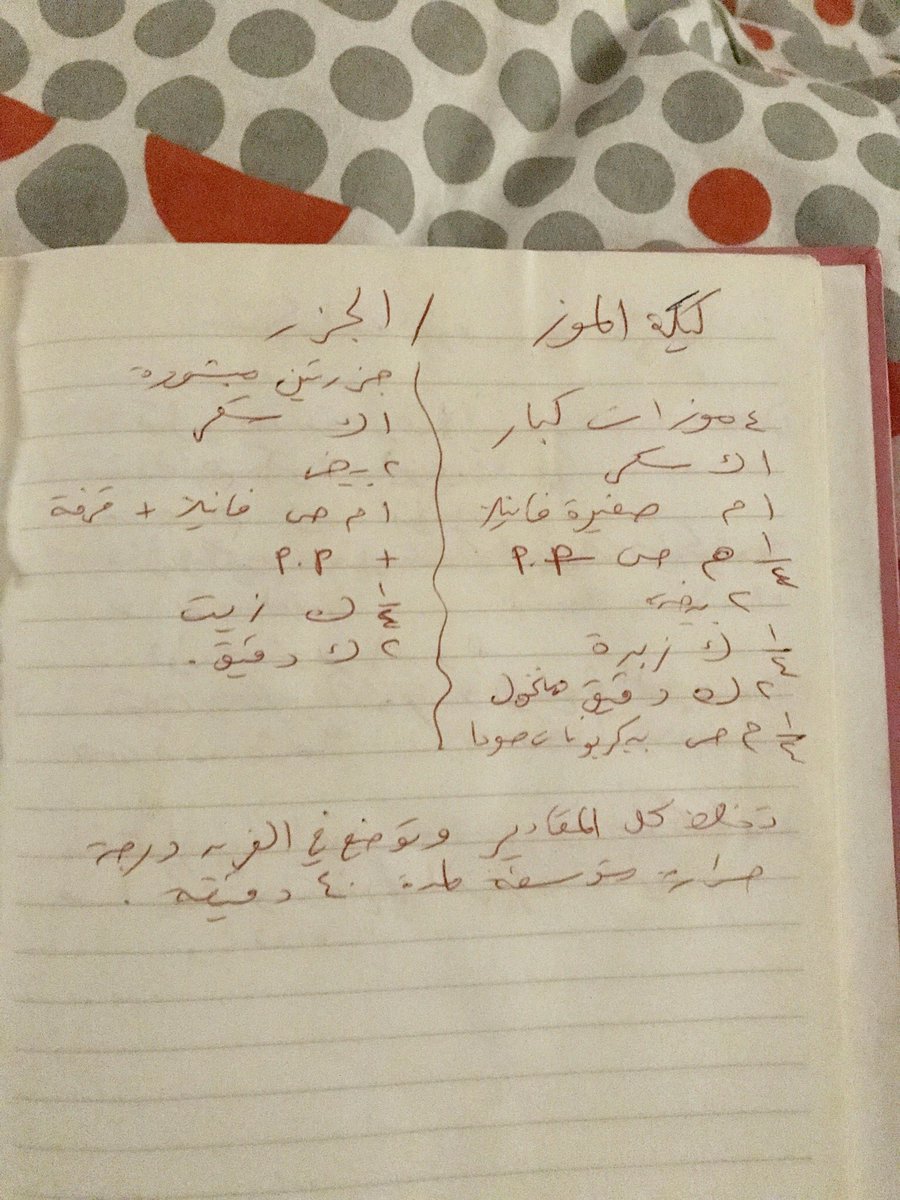 كيكة الموز / الجزر
٤ موزات كبار
١ ك سكر
١ م صغيرة فانيلا
١/٤ م ص P.P
٢ بيضه
١/٤ ك زبدة
٢ ك دقيق منخول
١/٤ م ص بيكربونات صودا
جزرتين مبشورة
١ ك سكر
٢ بيض
١ م ص فانيلا + قرفة
+ P.P
١/٤ ك زيت
٢ ك دقيق.
تخلط كل المقادير وتوضع في الفرن درجة
حرارة متوسطة لمدة ٤٠ دقيقه .